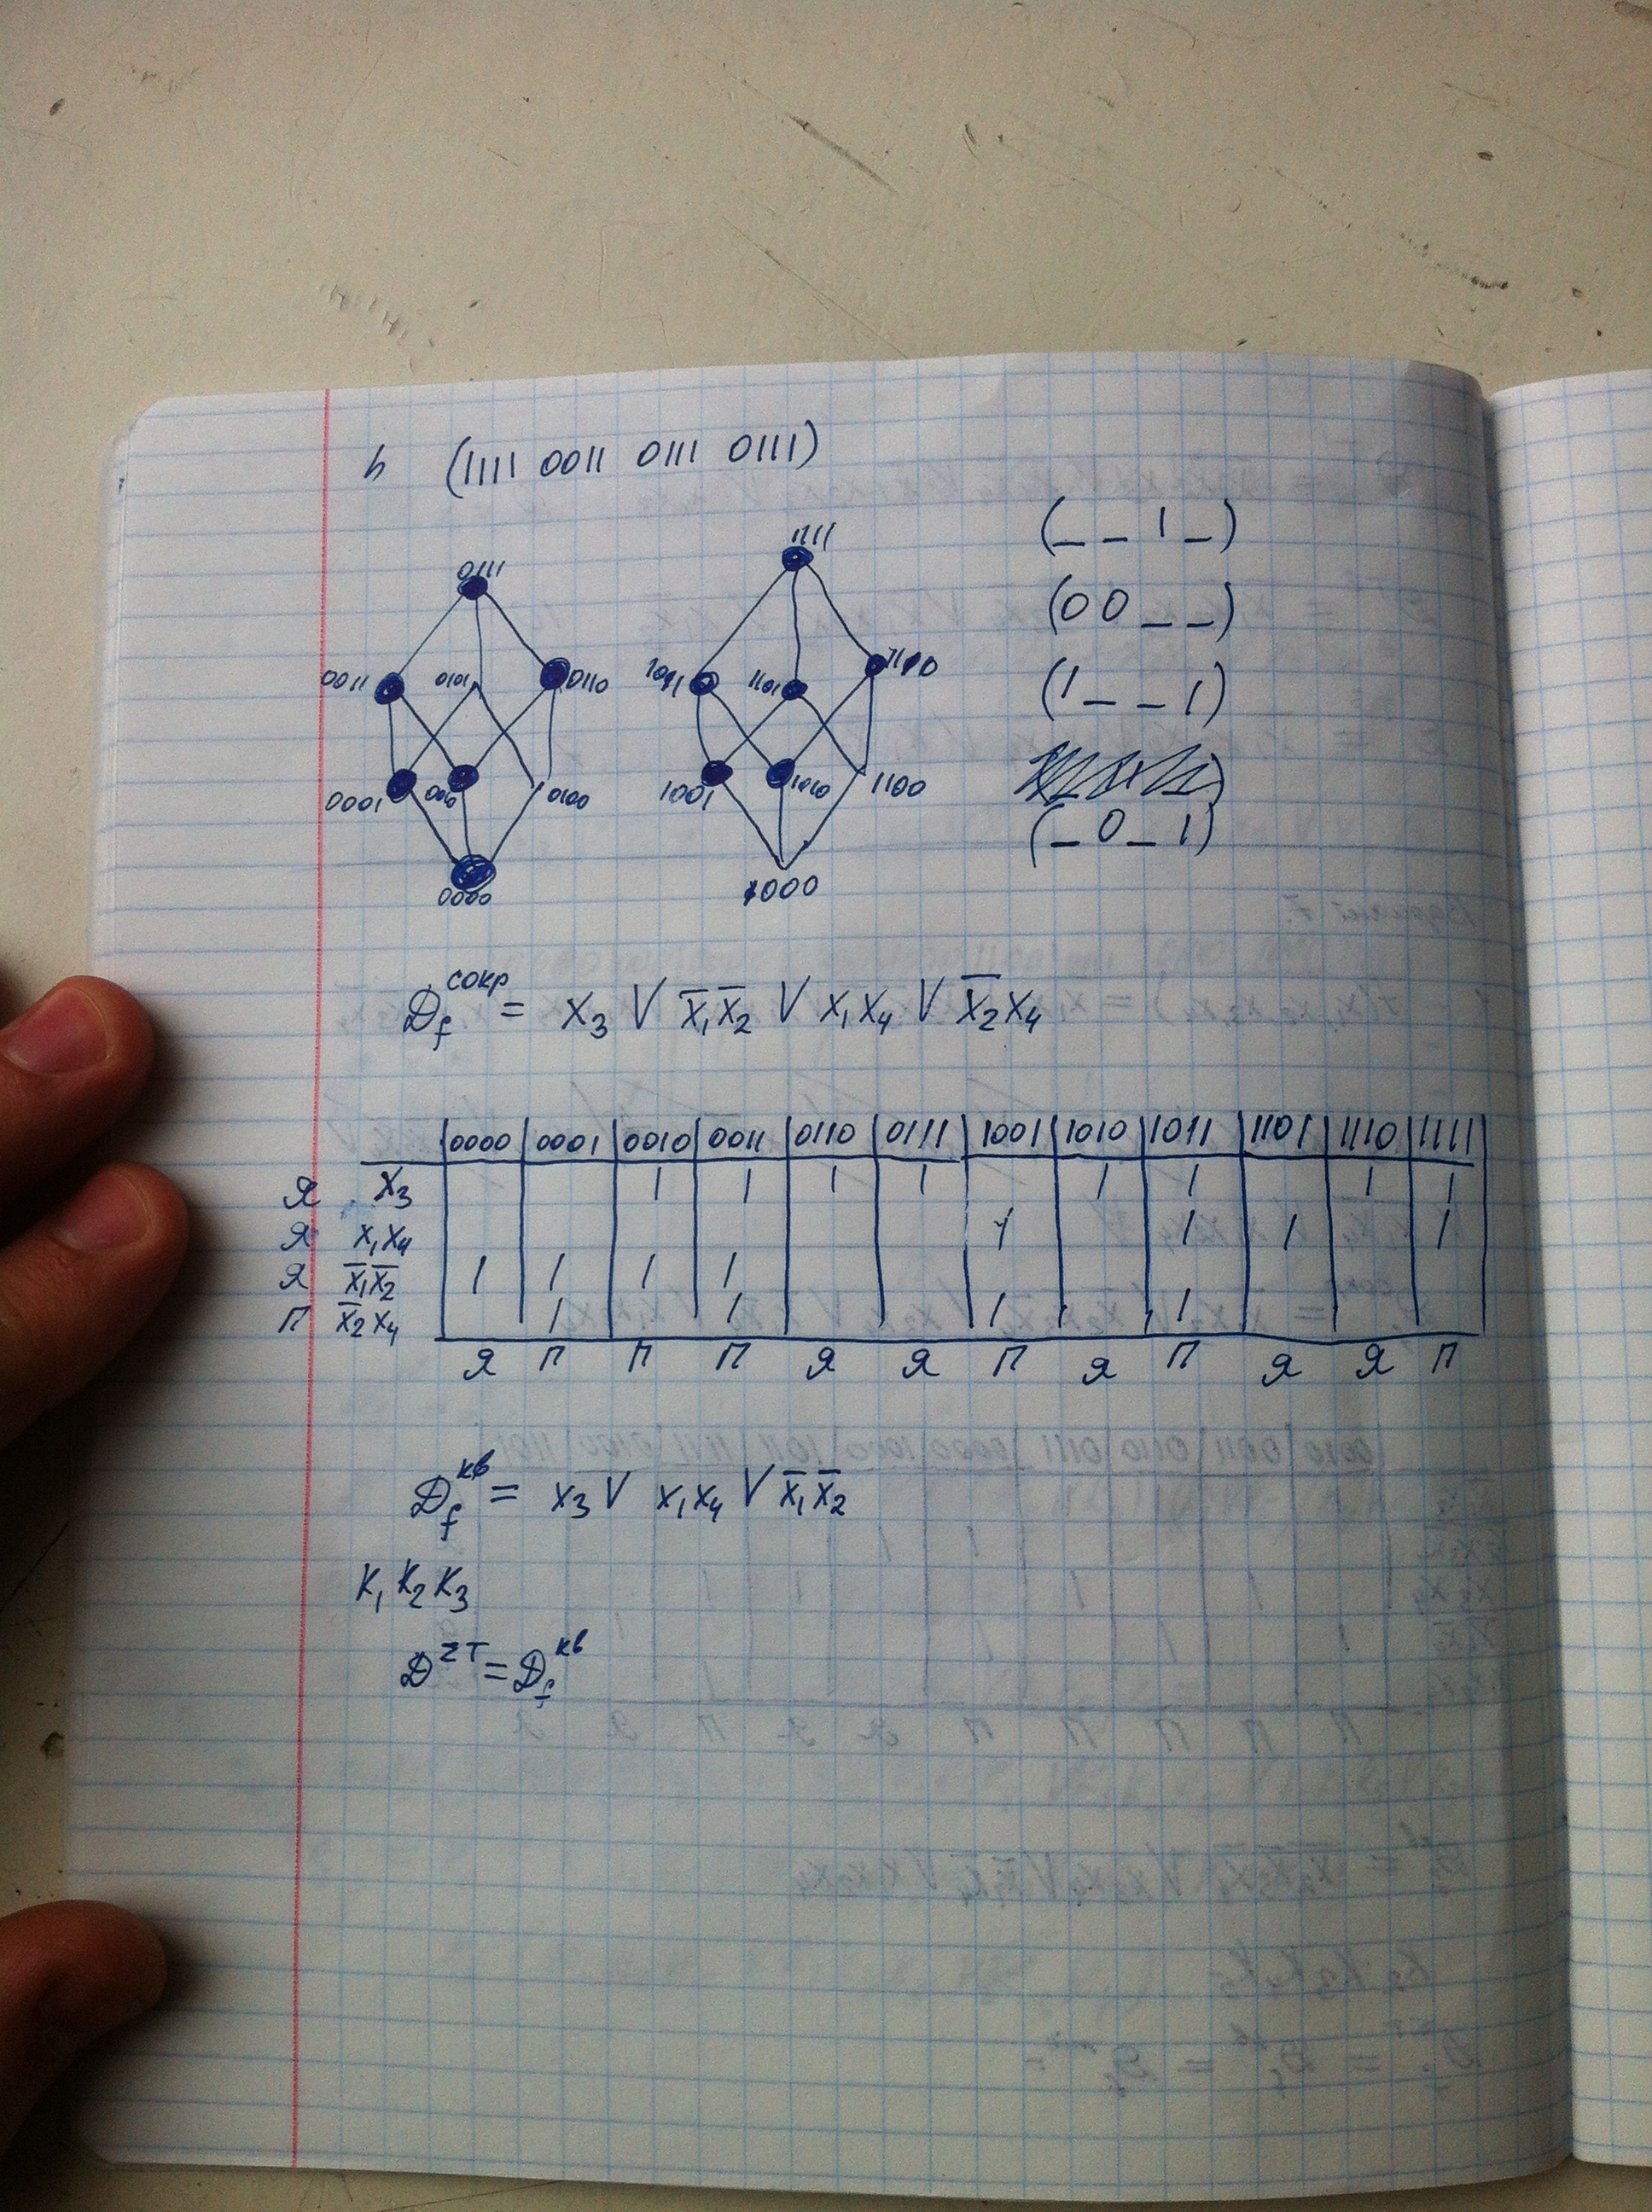 h (1111 0011 0111 0111)
0111 1111
0011 0101 0110 1011 1101 1110
0001 0010 0100 1001 1010 1100
0000 1000
(_ _ 1 _)
(0 0 _ _)
(1 _ _ 1)
(_ 0 _ 1)
D_f^сокр = x₃ V x̄₁x̄₂ V x₁x₄ V x̄₂x₄
0000 0001 0010 0011 0110 0111 1001 1010 1011 1101 1110 1111
Я x₃ 1 1 1 1 1 1 1 1
Я x₁x₄ 1 1 1 1
Я x̄₁x̄₂ 1 1 1 1
П x̄₂x₄ 1 1 1 1
Я П П П Я Я П Я П Я Я П
D_f^кв = x₃ V x₁x₄ V x̄₁x̄₂
K₁ K₂ K₃
D^ΣT = D_f^кв